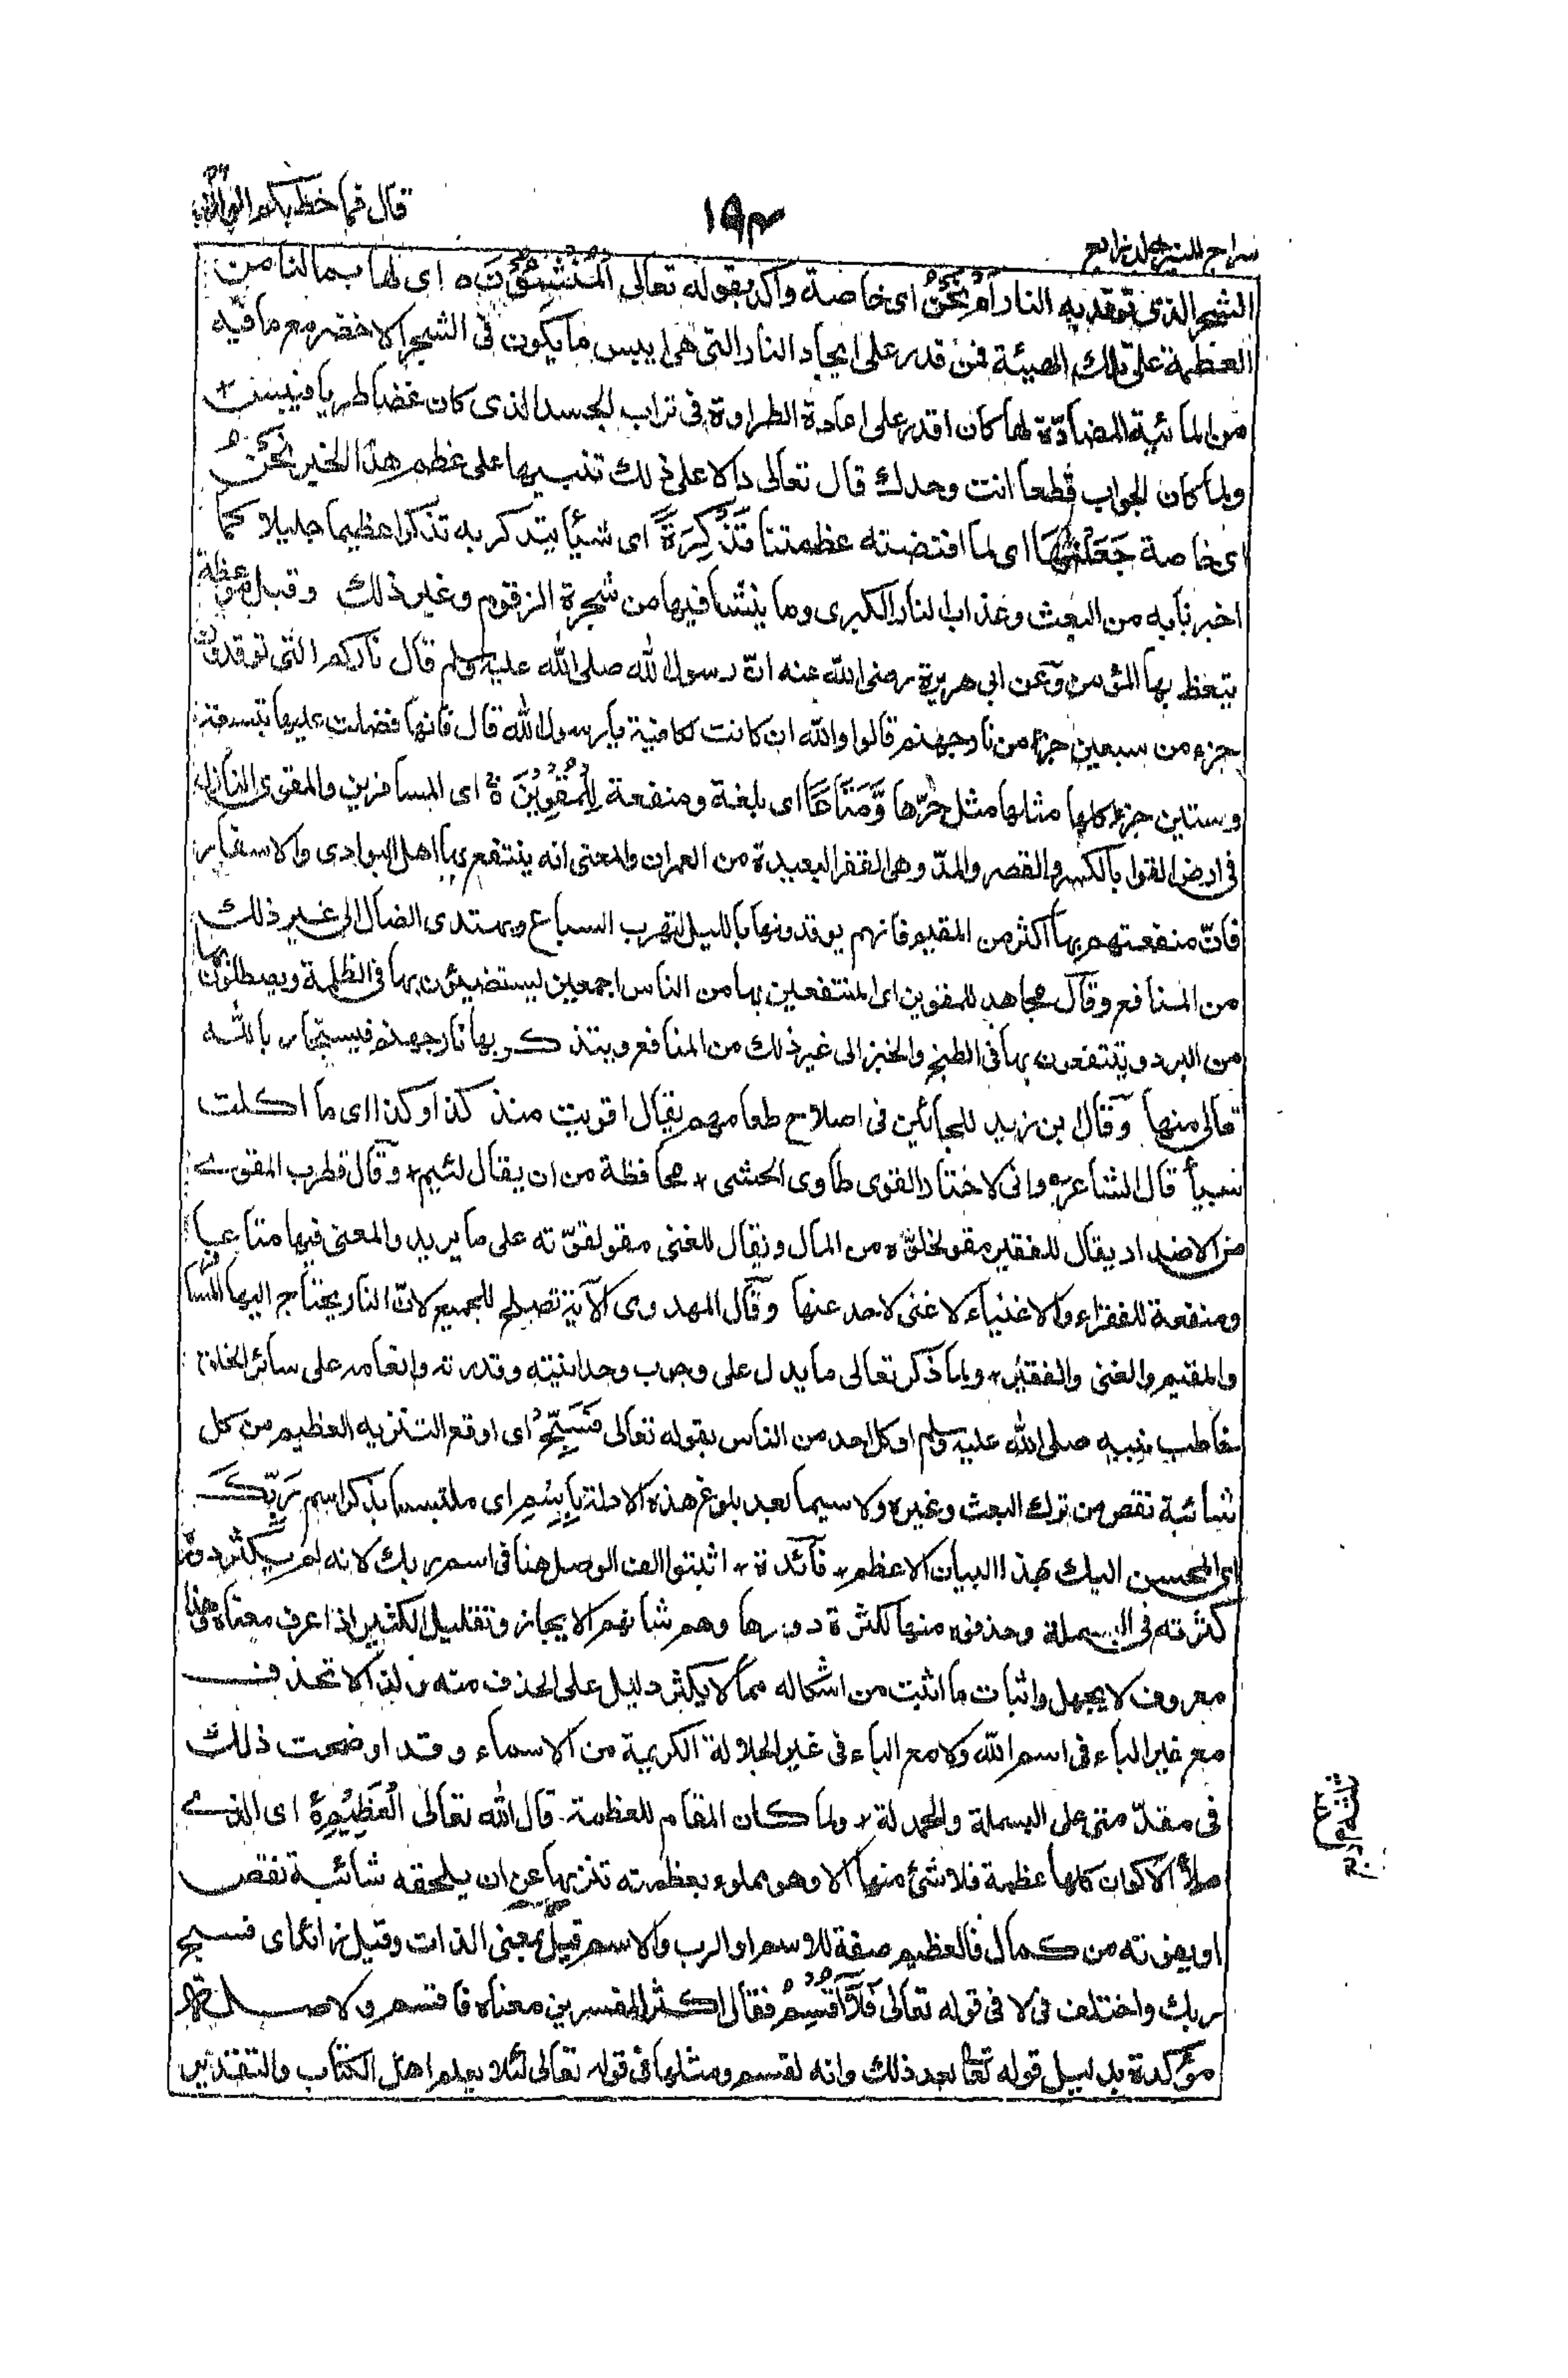 قال فما خطبكم
١٩٣
سراج المنير جلد رابع
الشجر الذى توقد به النار اَمْ نَحْنُ اى خاصة واكد بقوله تعالى اَلْمُنْشِئُوْنَ ه اى لها بمالنا من
العظمة على تلك الهيئة فمن قدر على ايجاد النار التى هى ايبس ما يكون فى الشجر الاخضر مع ما فيه
من المائية المضادّة لها كان اقدر على اعادة الطراوة فى تراب الجسد الذى كان غضا طريا فيبس +
ولما كان الجواب قطعا انت وحدك قال تعالى دالا على ذلك تنبيها على عظم هذا الخير نَحْنُ
اى خاصة جَعَلْنٰهَا اى لما اقتضته عظمتنا تَذْكِرَةً اى شيأ يتذكر به تذكرا عظيما جليلا كما
اخبرنا به من البعث وعذاب النار الكبرى وما ينشأ فيها من شجرة الزقوم وغير ذلك وقيل موعظة
يتعظ بها المؤمن وعن ابى هريرة رضى الله عنه انّ رسول الله صلى الله عليه وسلم قال ناركم التى توقدون
جزء من سبعين جزء من نار جهنم قالوا والله ان كانت لكافية يا رسول الله قال فانها فضلت عليها بتسعة
وستين جزء كلها مثلها مثل حرّها وَّمَتَاعًا اى بلغة ومنفعة لِلْمُقْوِيْنَ ه اى المسافرين والمقوى النازل
فى ارض القوا بالكسر والقصر والمدّ وهى القفر البعيدة من العمران والمعنى انه ينتفع بها اهل البوادى والاسفار
فانّ منفعتهم بها اكثر من المقيم فانهم يوقدونها بالليل لتهرب السباع ويهتدى الضال الى غير ذلك
من المنافع وقال مجاهد للمقوين اى المنتفعين بها من الناس اجمعين ليستضيئون بها فى الظلمة ويصطلون بها
من البرد وينتفعون بها فى الطبخ والخبز الى غير ذلك من المنافع ويتذكر بها نار جهنم فيستجار بالله
تعالى منها وقال ابن زيد للجائعين فى اصلاح طعامهم يقال اقويت منذ كذا وكذا اى ما اكلت
شيأ قال الشاعر وانى لاختار القوى طاوى الحشى + محافظة من ان يقال لئيم + وقال قطرب المقوى
من الاضداد يقال للفقير مقو لخلوّه من المال ويقال للغنى مقو لقوّته على ما يريد والمعنى فيها متاعا
ومنفعة للفقراء والاغنياء لا غنى لاحد عنها وقال المهدوى الآية تصلح للجميع لانّ النار يحتاج اليها المسافر
والمقيم والغنى والفقير + ولما ذكر تعالى ما يدل على وجوب وحدانيته وقدرته وانعامه على سائر الخلق
خاطب نبيه صلى الله عليه وسلم او كل احد من الناس بقوله تعالى فَسَبِّحْ اى اوقع التنزيه العظيم من كل
شائبة نقص من ترك البعث وغيره ولا سيما بعد بلوغ هذه الادلة بِاسْمِ اى ملتبسا بذكر اسم رَبِّكَ
اى المحسن اليك بهذا البيان الاعظم + فائدة + اثبتوا الف الوصل هنا فى اسم ربك لانه لم يكثر دوره
كثرته فى البسملة وحذفوه منها لكثرة دورها وهم شانهم الايجاز وتقليل الكثير اذا عرف معناه وهذا
معروف لا يجهل واثبات ما اثبت من اشكاله مما لا يكثر دليل على الحذف منه ولذا لا تحذف
مع غير الباء فى اسم الله ولا مع الباء فى غير الجلالة الكريمة من الاسماء وقد اوضحت ذلك
فى مقدّمتى على البسملة والحمدلة + ولما كان المقام للعظمة قال الله تعالى الْعَظِيْمِ ه اى الذى
ملأ الاكوان كلها عظمة فلا شئ منها الا وهو مملوء بعظمته تنزيها عن ان يلحقه شائبة نقص
او يفوته من كمال فالعظيم صفة للاسم او الرب والاسم قيل بمعنى الذات وقيل زائد اى فسبح
ربك واختلف فى لا فى قوله تعالى فَلَآ اُقْسِمُ فقال اكثر المفسرين معناه فاقسم ولا صلة
مؤكدة بدليل قوله تعا بعد ذلك وانه لقسم ومثلها فى قوله تعالى لئلا يعلم اهل الكتاب والتقدير